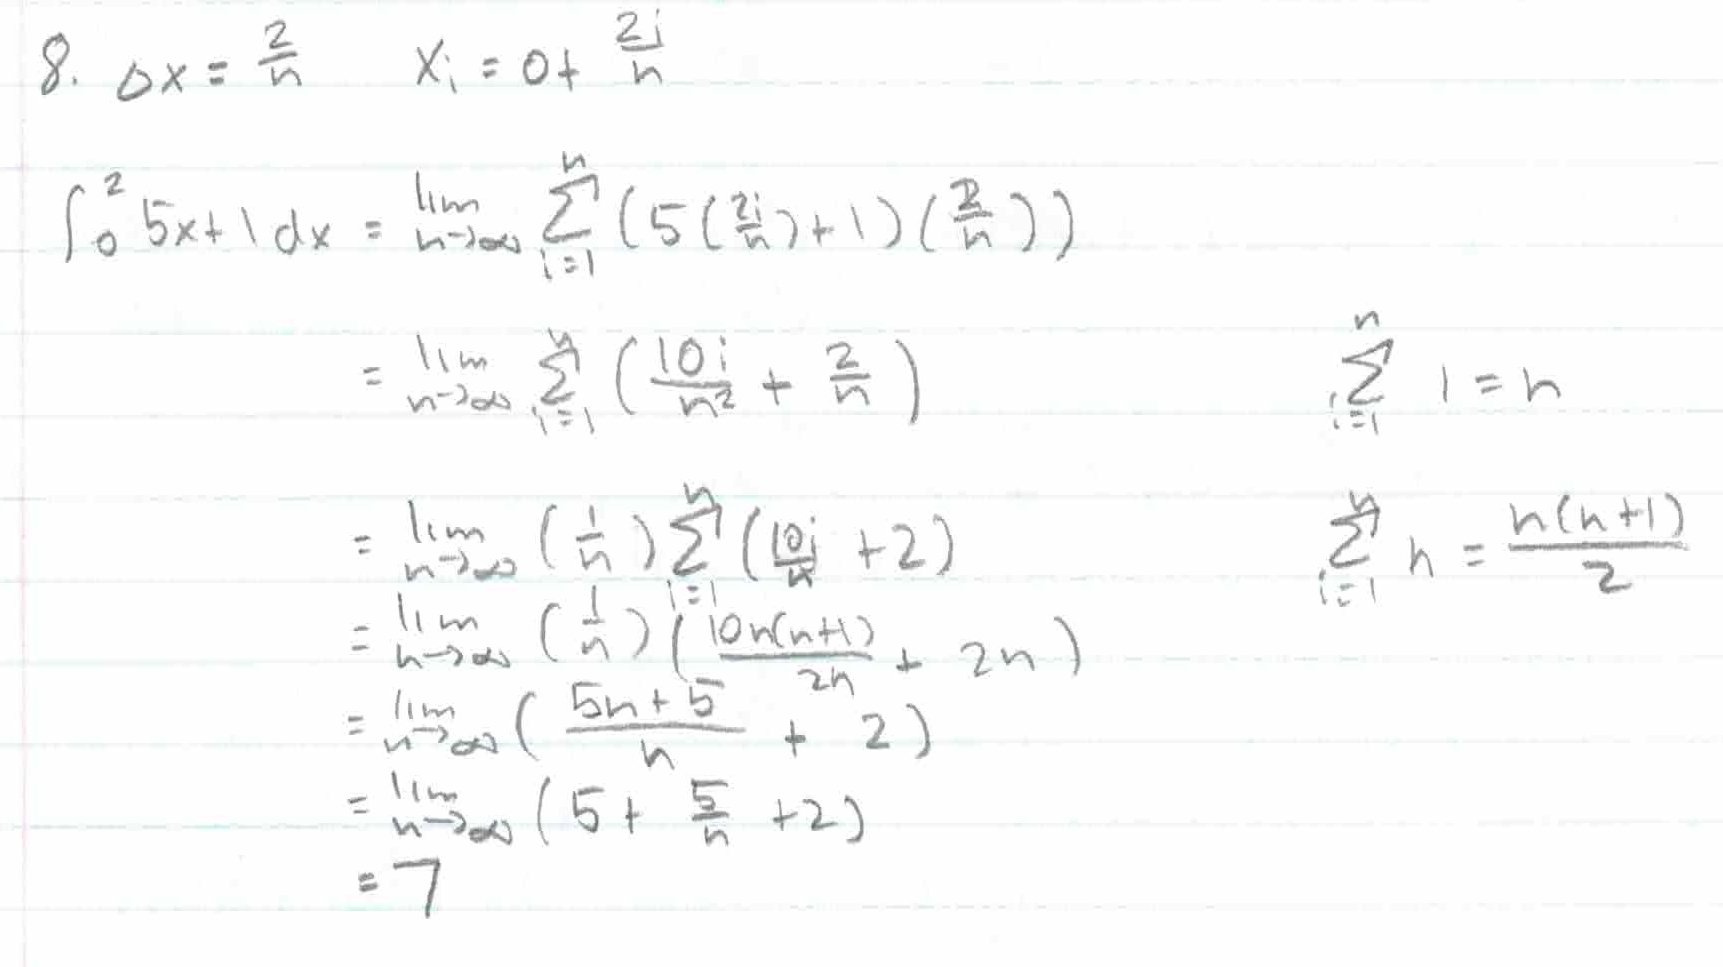 8. Δx = 2/n    xᵢ = 0 + 2i/n
∫₀² 5x+1 dx = lim n→∞ Σ i=1 n (5(2i/n)+1)(2/n))
= lim n→∞ Σ i=1 n (10i/n² + 2/n)    Σ i=1 n 1 = n
= lim n→∞ (1/n) Σ i=1 n (10i/n + 2)    Σ i=1 n n = n(n+1)/2
= lim n→∞ (1/n)(10n(n+1)/2n + 2n)
= lim n→∞ (5n+5/n + 2)
= lim n→∞ (5 + 5/n + 2)
= 7